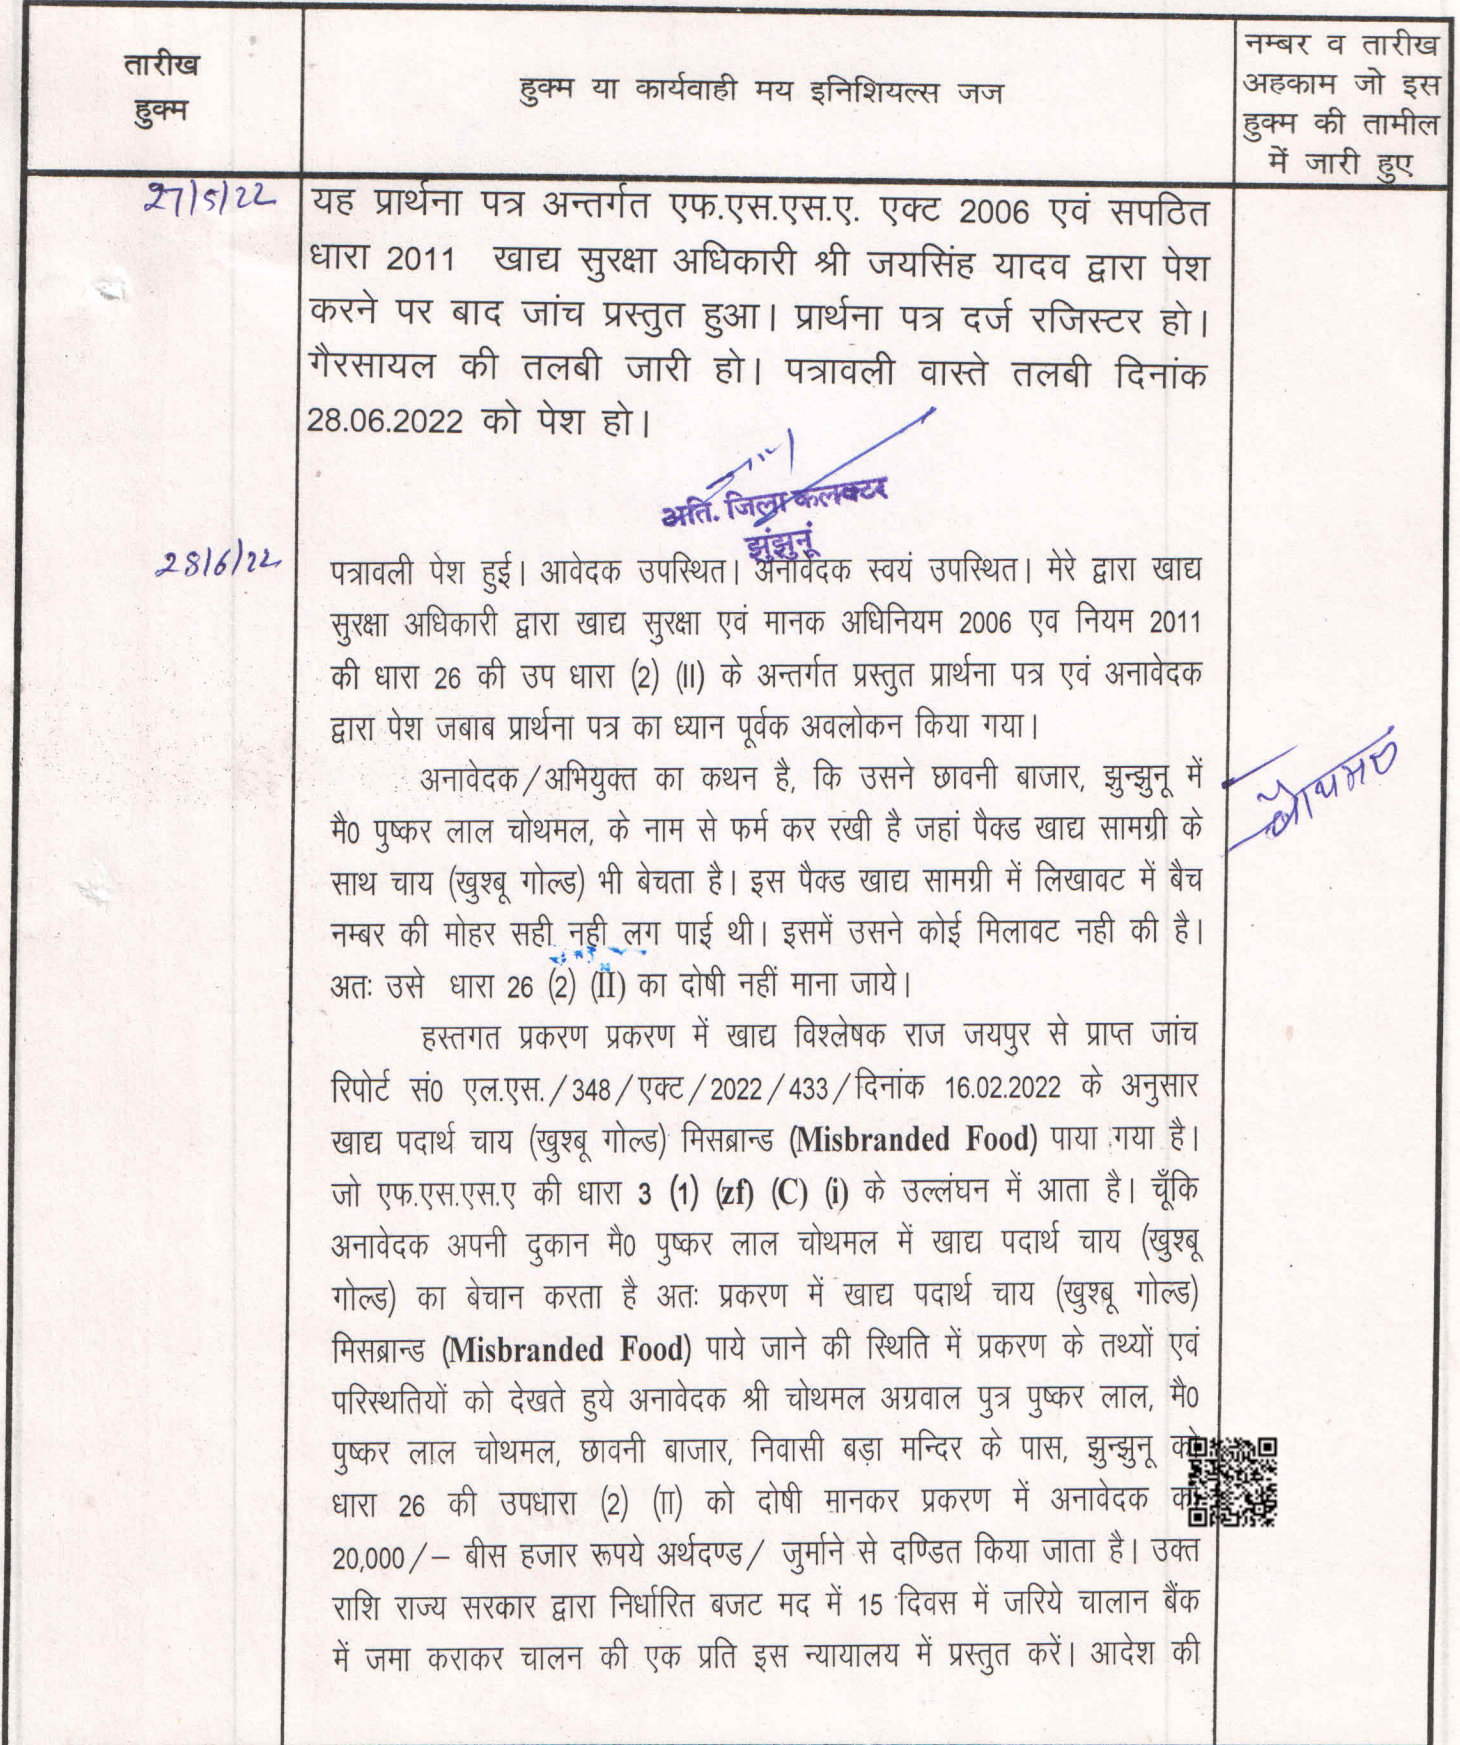 तारीख
हुक्म
हुक्म या कार्यवाही मय इनिशियल्स जज
नम्बर व तारीख
अहकाम जो इस
हुक्म की तामील
में जारी हुए
27/5/22
यह प्रार्थना पत्र अन्तर्गत एफ.एस.एस.ए. एक्ट 2006 एवं सपठित
धारा 2011 खाद्य सुरक्षा अधिकारी श्री जयसिंह यादव द्वारा पेश
करने पर बाद जांच प्रस्तुत हुआ। प्रार्थना पत्र दर्ज रजिस्टर हो।
गैरसायल की तलबी जारी हो। पत्रावली वास्ते तलबी दिनांक
28.06.2022 को पेश हो।
अति. जिला कलक्टर
झुंझुनूं
28/6/22
पत्रावली पेश हुई। आवेदक उपस्थित। अनावेदक स्वयं उपस्थित। मेरे द्वारा खाद्य
सुरक्षा अधिकारी द्वारा खाद्य सुरक्षा एवं मानक अधिनियम 2006 एव नियम 2011
की धारा 26 की उप धारा (2) (II) के अन्तर्गत प्रस्तुत प्रार्थना पत्र एवं अनावेदक
द्वारा पेश जबाब प्रार्थना पत्र का ध्यान पूर्वक अवलोकन किया गया।
अनावेदक/अभियुक्त का कथन है, कि उसने छावनी बाजार, झुन्झुनू में
मै0 पुष्कर लाल चोथमल, के नाम से फर्म कर रखी है जहां पैक्ड खाद्य सामग्री के
साथ चाय (खुश्बू गोल्ड) भी बेचता है। इस पैक्ड खाद्य सामग्री में लिखावट में बैच
नम्बर की मोहर सही नही लग पाई थी। इसमें उसने कोई मिलावट नही की है।
अतः उसे धारा 26 (2) (II) का दोषी नहीं माना जाये।
चौथमल
हस्तगत प्रकरण प्रकरण में खाद्य विश्लेषक राज जयपुर से प्राप्त जांच
रिपोर्ट सं0 एल.एस./348/एक्ट/2022/433/दिनांक 16.02.2022 के अनुसार
खाद्य पदार्थ चाय (खुश्बू गोल्ड) मिसब्रान्ड (Misbranded Food) पाया गया है।
जो एफ.एस.एस.ए की धारा 3 (1) (zf) (C) (i) के उल्लंघन में आता है। चूँकि
अनावेदक अपनी दुकान मै0 पुष्कर लाल चोथमल में खाद्य पदार्थ चाय (खुश्बू
गोल्ड) का बेचान करता है अतः प्रकरण में खाद्य पदार्थ चाय (खुश्बू गोल्ड)
मिसब्रान्ड (Misbranded Food) पाये जाने की स्थिति में प्रकरण के तथ्यों एवं
परिस्थतियों को देखते हुये अनावेदक श्री चोथमल अग्रवाल पुत्र पुष्कर लाल, मै0
पुष्कर लाल चोथमल, छावनी बाजार, निवासी बड़ा मन्दिर के पास, झुन्झुनू को
धारा 26 की उपधारा (2) (II) को दोषी मानकर प्रकरण में अनावेदक को
20,000/– बीस हजार रूपये अर्थदण्ड/ जुर्माने से दण्डित किया जाता है। उक्त
राशि राज्य सरकार द्वारा निर्धारित बजट मद में 15 दिवस में जरिये चालान बैंक
में जमा कराकर चालन की एक प्रति इस न्यायालय में प्रस्तुत करें। आदेश की